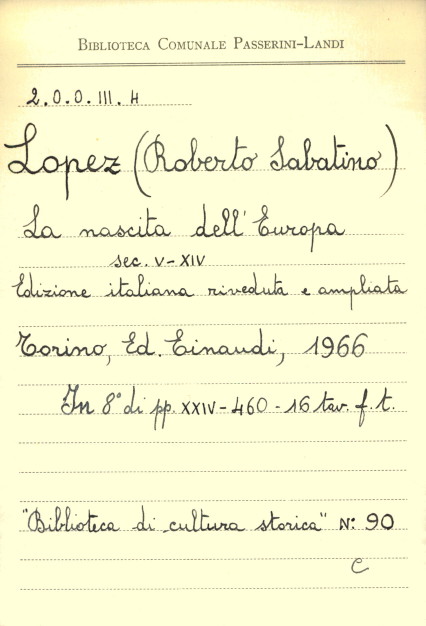 BIBLIOTECA COMUNALE PASSERINI-LANDI
2.0.0.III.4
Lopez (Roberto Sabatino)
La nascita dell'Europa
sec. V-XIV
Edizione italiana riveduta e ampliata
Torino, Ed. Einaudi, 1966
In 8° di pp. XXIV-460-16 tav. f.t.
"Biblioteca di cultura storica" N: 90
C